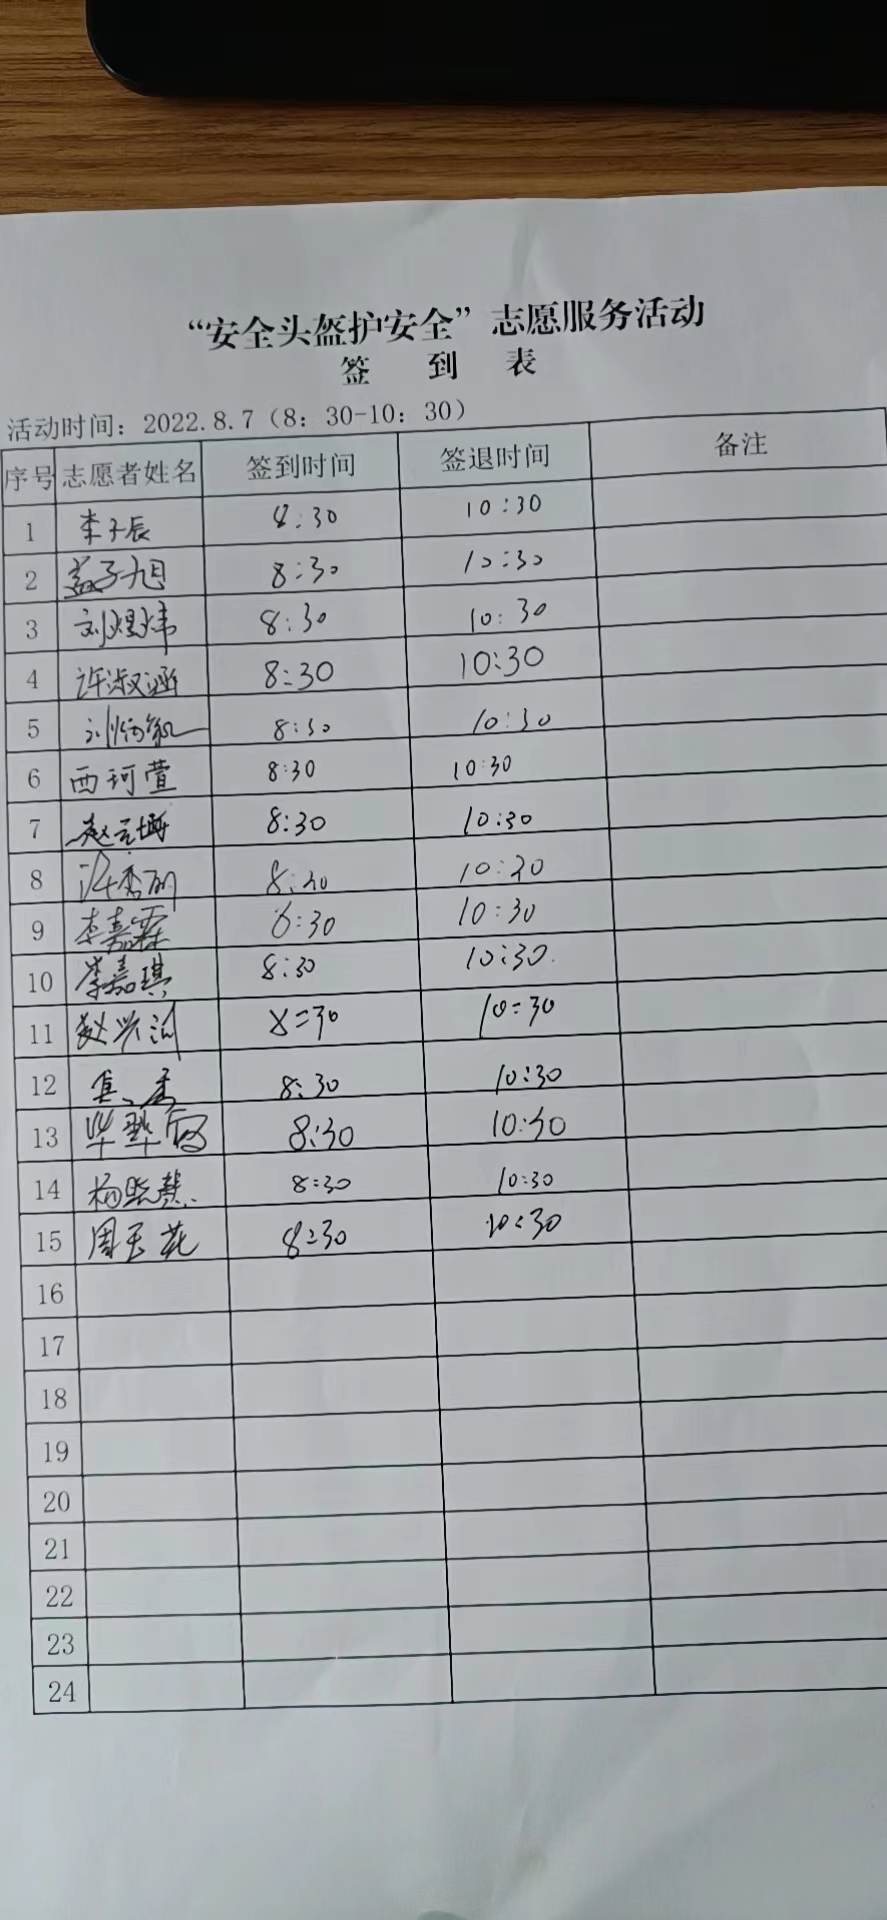 “安全头盔护安全”志愿服务活动
签 到 表
活动时间：2022.8.7（8：30-10：30）
序号 志愿者姓名 签到时间 签退时间 备注
1 李子辰 8:30 10:30
2 孟子旭 8:30 10:30
3 刘煜炜 8:30 10:30
4 许淑涵 8:30 10:30
5 8:30 10:30
6 西珂萱 8:30 10:30
7 8:30 10:30
8 8:30 10:30
9 李嘉霖 8:30 10:30
10 李嘉琪 8:30 10:30
11 8:30 10:30
12 8:30 10:30
13 8:30 10:30
14 杨晓慧 8:30 10:30
15 周玉花 8:30 10:30
16
17
18
19
20
21
22
23
24